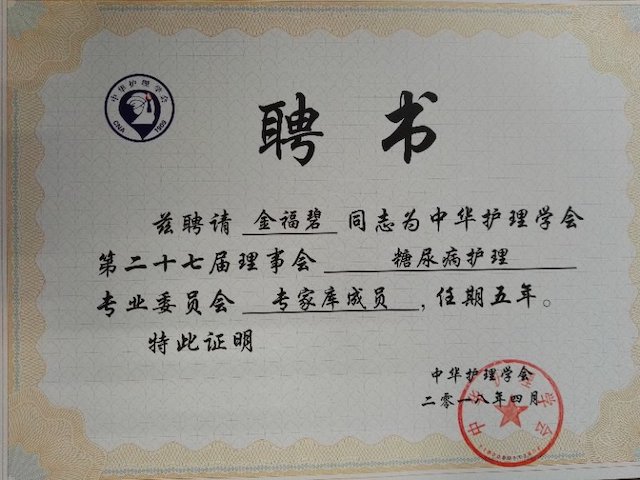 中华护理学会
CNA 1909
聘书
兹聘请 金福碧 同志为中华护理学会
第二十七届理事会 糖尿病护理
专业委员会 专家库成员,任期五年。
特此证明
中华护理学会
二零一八年四月
中华护理学会